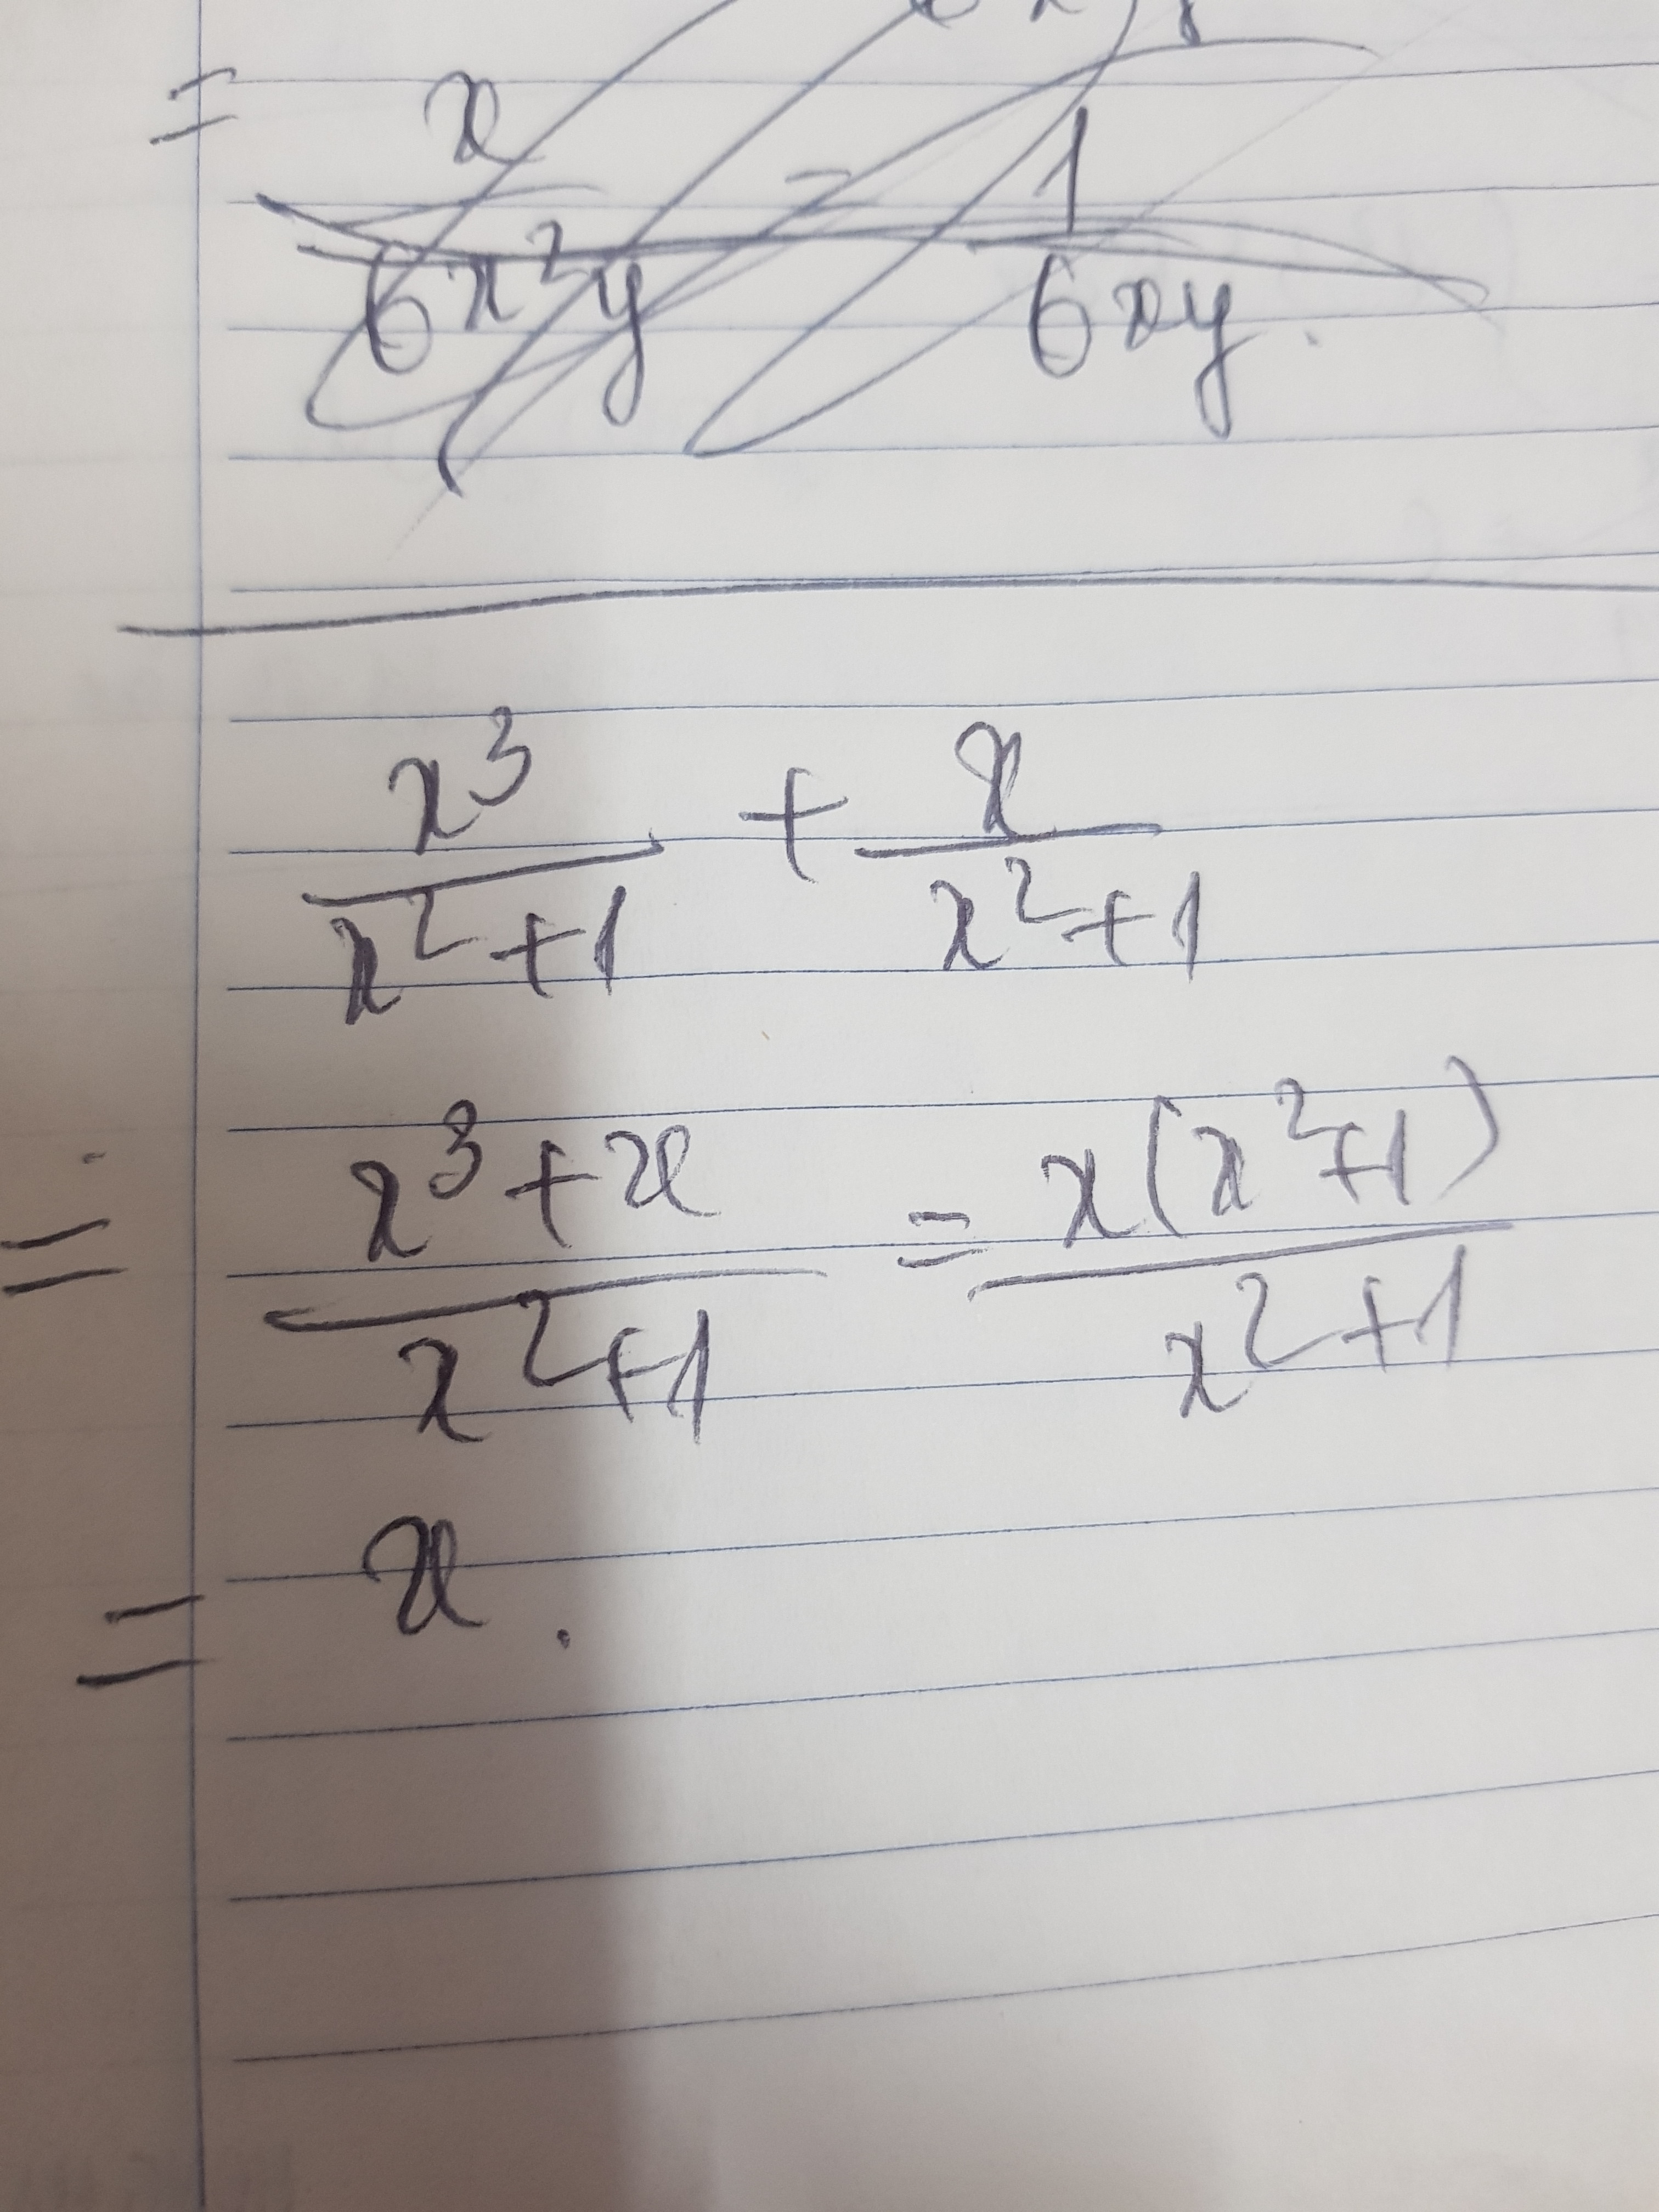 = x/6x²y = 1/6xy.
x³/x²+1 + x/x²+1
= x³+x/x²+1 = x(x²+1)/x²+1
= x.